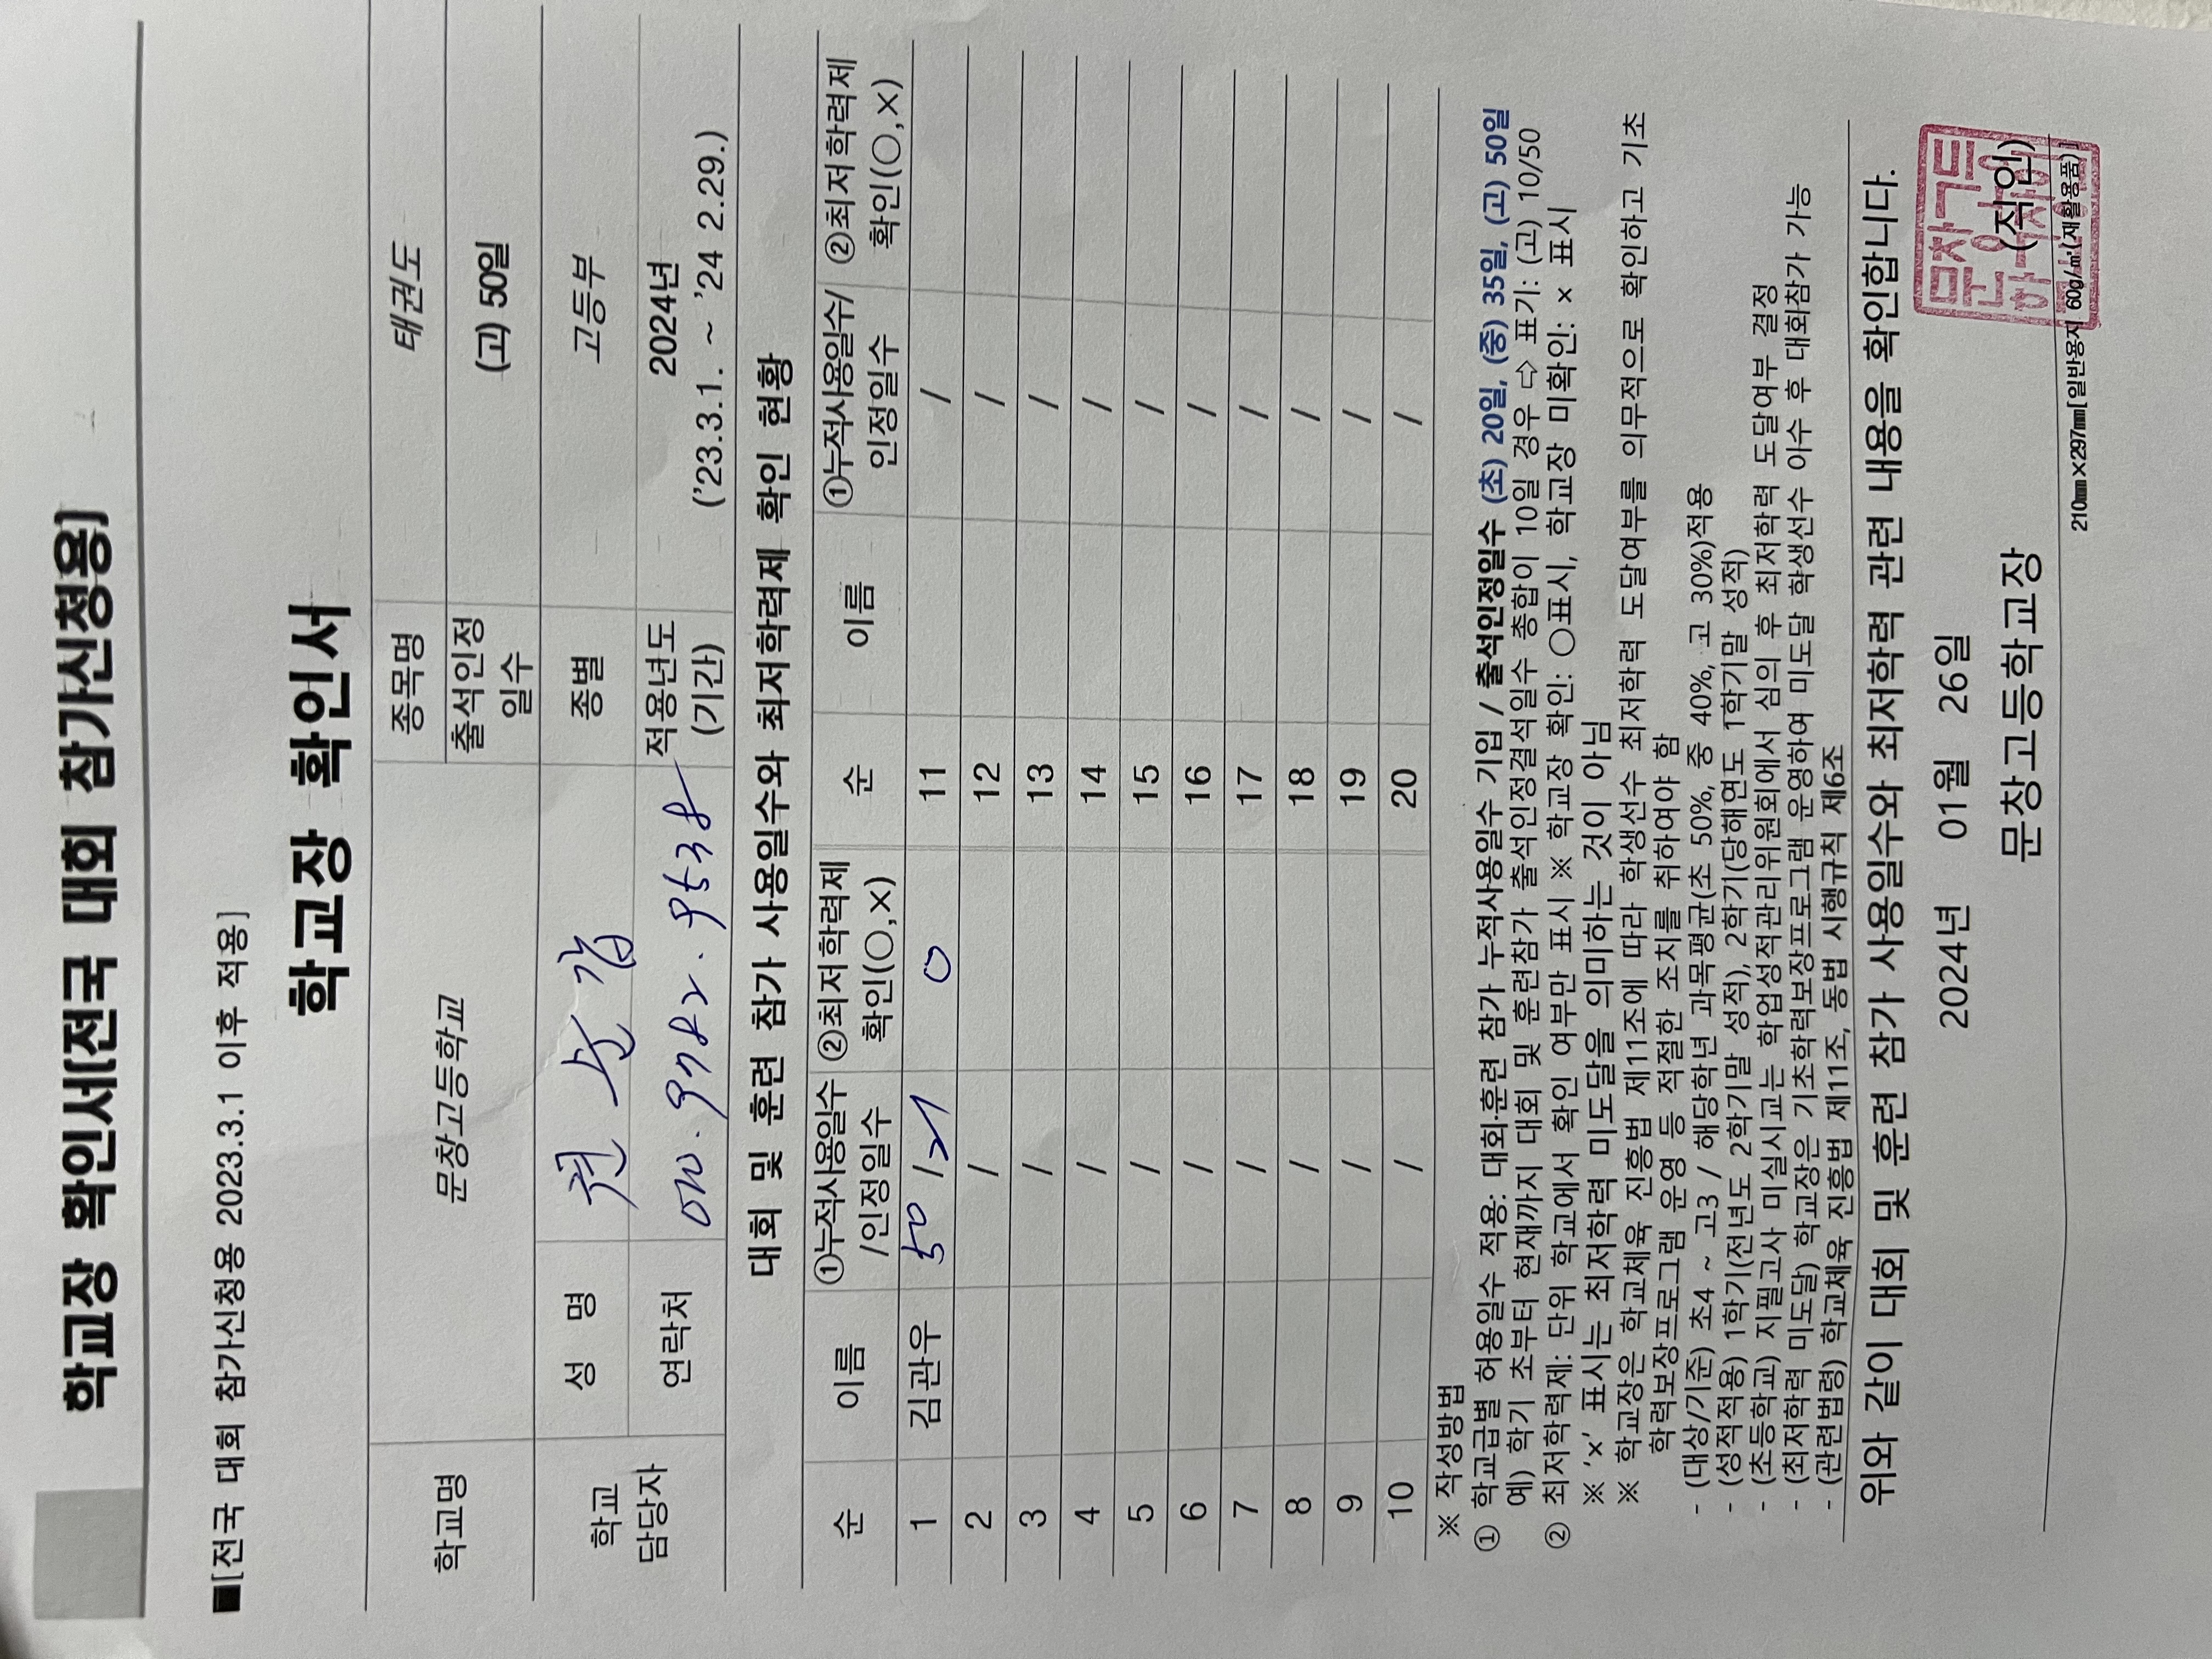 학교장 확인서[전국 대회 참가신청용]
■[전국 대회 참가신청용 2023.3.1 이후 적용]
학교장 확인서
학교명 문창고등학교 종목명 태권도
출석인정 일수 (고) 50일
학교 담당자 성 명 종별 고등부
연락처 적용년도 (기간) 2024년 ('23.3.1. ~ '24 2.29.)
대회 및 훈련 참가 사용일수와 최저학력제 확인 현황
순 이름 ①누적사용일수 /인정일수 ②최저학력제 확인(○,×) 순 이름 ①누적사용일수/ 인정일수 ②최저학력제 확인(○,×)
1 김관우 50 / 21 0 11 /
2 / 12 /
3 / 13 /
4 / 14 /
5 / 15 /
6 / 16 /
7 / 17 /
8 / 18 /
9 / 19 /
10 / 20 /
※ 작성방법
① 학교급별 허용일수 적용: 대회.훈련 참가 누적사용일수 기입 / 출석인정일수 (초) 20일, (중) 35일, (고) 50일
예) 학기 초부터 현재까지 대회 및 훈련참가 출석인정결석일수 총합이 10일 경우 ⇨ 표기: (고) 10/50
② 최저학력제: 단위 학교에서 확인 여부만 표시 ※ 학교장 확인: ○표시, 학교장 미확인: × 표시
※ '×' 표시는 최저학력 미도달을 의미하는 것이 아님
※ 학교장은 학교체육 진흥법 제11조에 따라 학생선수 최저학력 도달여부를 의무적으로 확인하고 기초
학력보장프로그램 운영 등 적절한 조치를 취하여야 함
- (대상/기준) 초4 ~ 고3 / 해당학년 과목평균(초 50%, 중 40%, 고 30%)적용
- (성적적용) 1학기(전년도 2학기말 성적), 2학기(당해연도 1학기말 성적)
- (초등학교) 지필고사 미실시교는 학업성적관리위원회에서 심의 후 최저학력 도달여부 결정
- (최저학력 미도달) 학교장은 기초학력보장프로그램 운영하여 미도달 학생선수 이수 후 대회참가 가능
- (관련법령) 학교체육 진흥법 제11조, 동법 시행규칙 제6조
위와 같이 대회 및 훈련 참가 사용일수와 최저학력 관련 내용을 확인합니다.
2024년 01월 26일
문창고등학교장 (직인)
210㎜×297㎜[일반용지 60g/㎡(재활용품)]